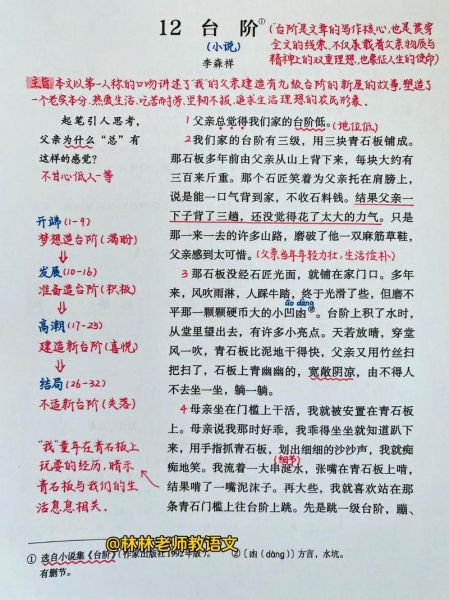 12 台 阶①
(小说)
李森祥
(“台阶”是文章的写作核心,也是贯穿
全文的线索,不仅承载着父亲物质与
精神上的双重理想,也象征人生的使命)
主旨:本文以第一人称的口吻讲述了“我”的父亲建造有九级台阶的新屋的故事,塑造了
一个老实本分、热爱生活、吃苦耐劳、坚韧不拔、追求生活理想的农民形象。
起笔引人思考,
父亲为什么“总”有
这样的感觉?
不甘心低人一等
开端(1-9)
梦想造台阶(渴盼)
发展(10-16)
准备造台阶(积极)
高潮(17-25)
建造新台阶(喜悦)
结局(26-32)
不适新台阶(失落)
“我”童年在青石板上
玩耍的经历,暗示
青石板与我们的生
活息息相关。
1 父亲总觉得我们家的台阶低。(地位低)
2 我们家的台阶有三级,用三块青石板铺成。
那石板多年前由父亲从山上背下来,每块大约有
三百来斤重。那个石匠笑着为父亲托在肩膀上,
说是能一口气背到家,不收石料钱。结果父亲一
下子背了三趟,还没觉得花了太大的力气。只是
那一来一去的许多山路,磨破了他一双麻筋草鞋,
父亲感到太可惜。(父亲当年年轻力壮,生活俭朴)
3 那石板没经石匠光面,就铺在家门口。多年
来,风吹雨淋,人踩牛踏,终于光滑了些,但磨不
āo dàng
平那一颗颗硬币大的小凹凼②。台阶上积了水时,
从堂里望出去,有许多小亮点。天若放晴,穿堂
风一吹,青石板比泥地干得快,父亲又用竹丝扫
把扫了,石板上青幽幽的,宽敞阴凉,由不得人
不去坐一坐,躺一躺。
4 母亲坐在门槛上干活,我就被安置在青石板
上。母亲说我那时好乖,我乖得坐坐就知道趴下
来,用手指抓青石板,划出细细的沙沙声,我就痴
痴地笑。我流着一大串涎水,张嘴在青石板上啃,
(细节)
结果啃了一嘴泥沫子。再大些,我就喜欢站在那
条青石门槛上往台阶上跳。先是跳一级台阶,蹦、
@林林老师教语文
① 选自小说集《台阶》(作家出版社1992年版)。
有删节。
② 〔凼(dàng)〕方言,水坑。